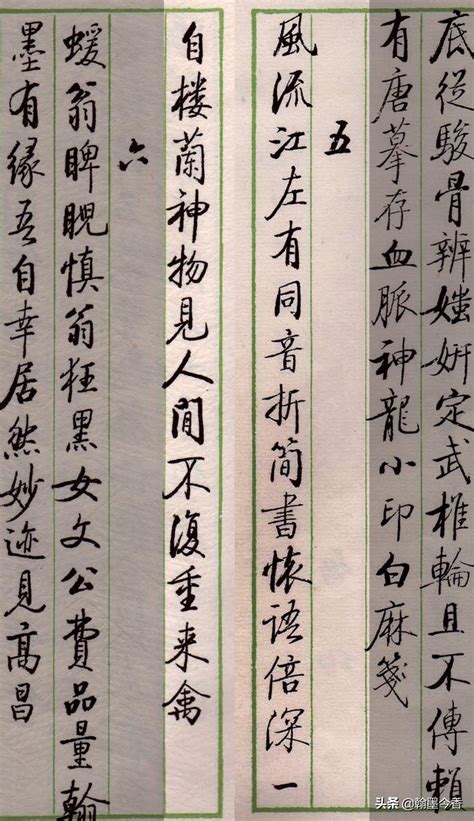 底從駿骨辨媸妍定武椎輪且不傳賴
有唐摹存血脈神龍小印白麻箋
五
風流江左有同音折簡書懷語倍深一
自楼蘭神物見人間不復重来禽
六
蝯翁睥睨慎翁狂黑女文公費品量翰
墨有緣吾自幸居然妙迹見高昌
头条 @翰墨今香